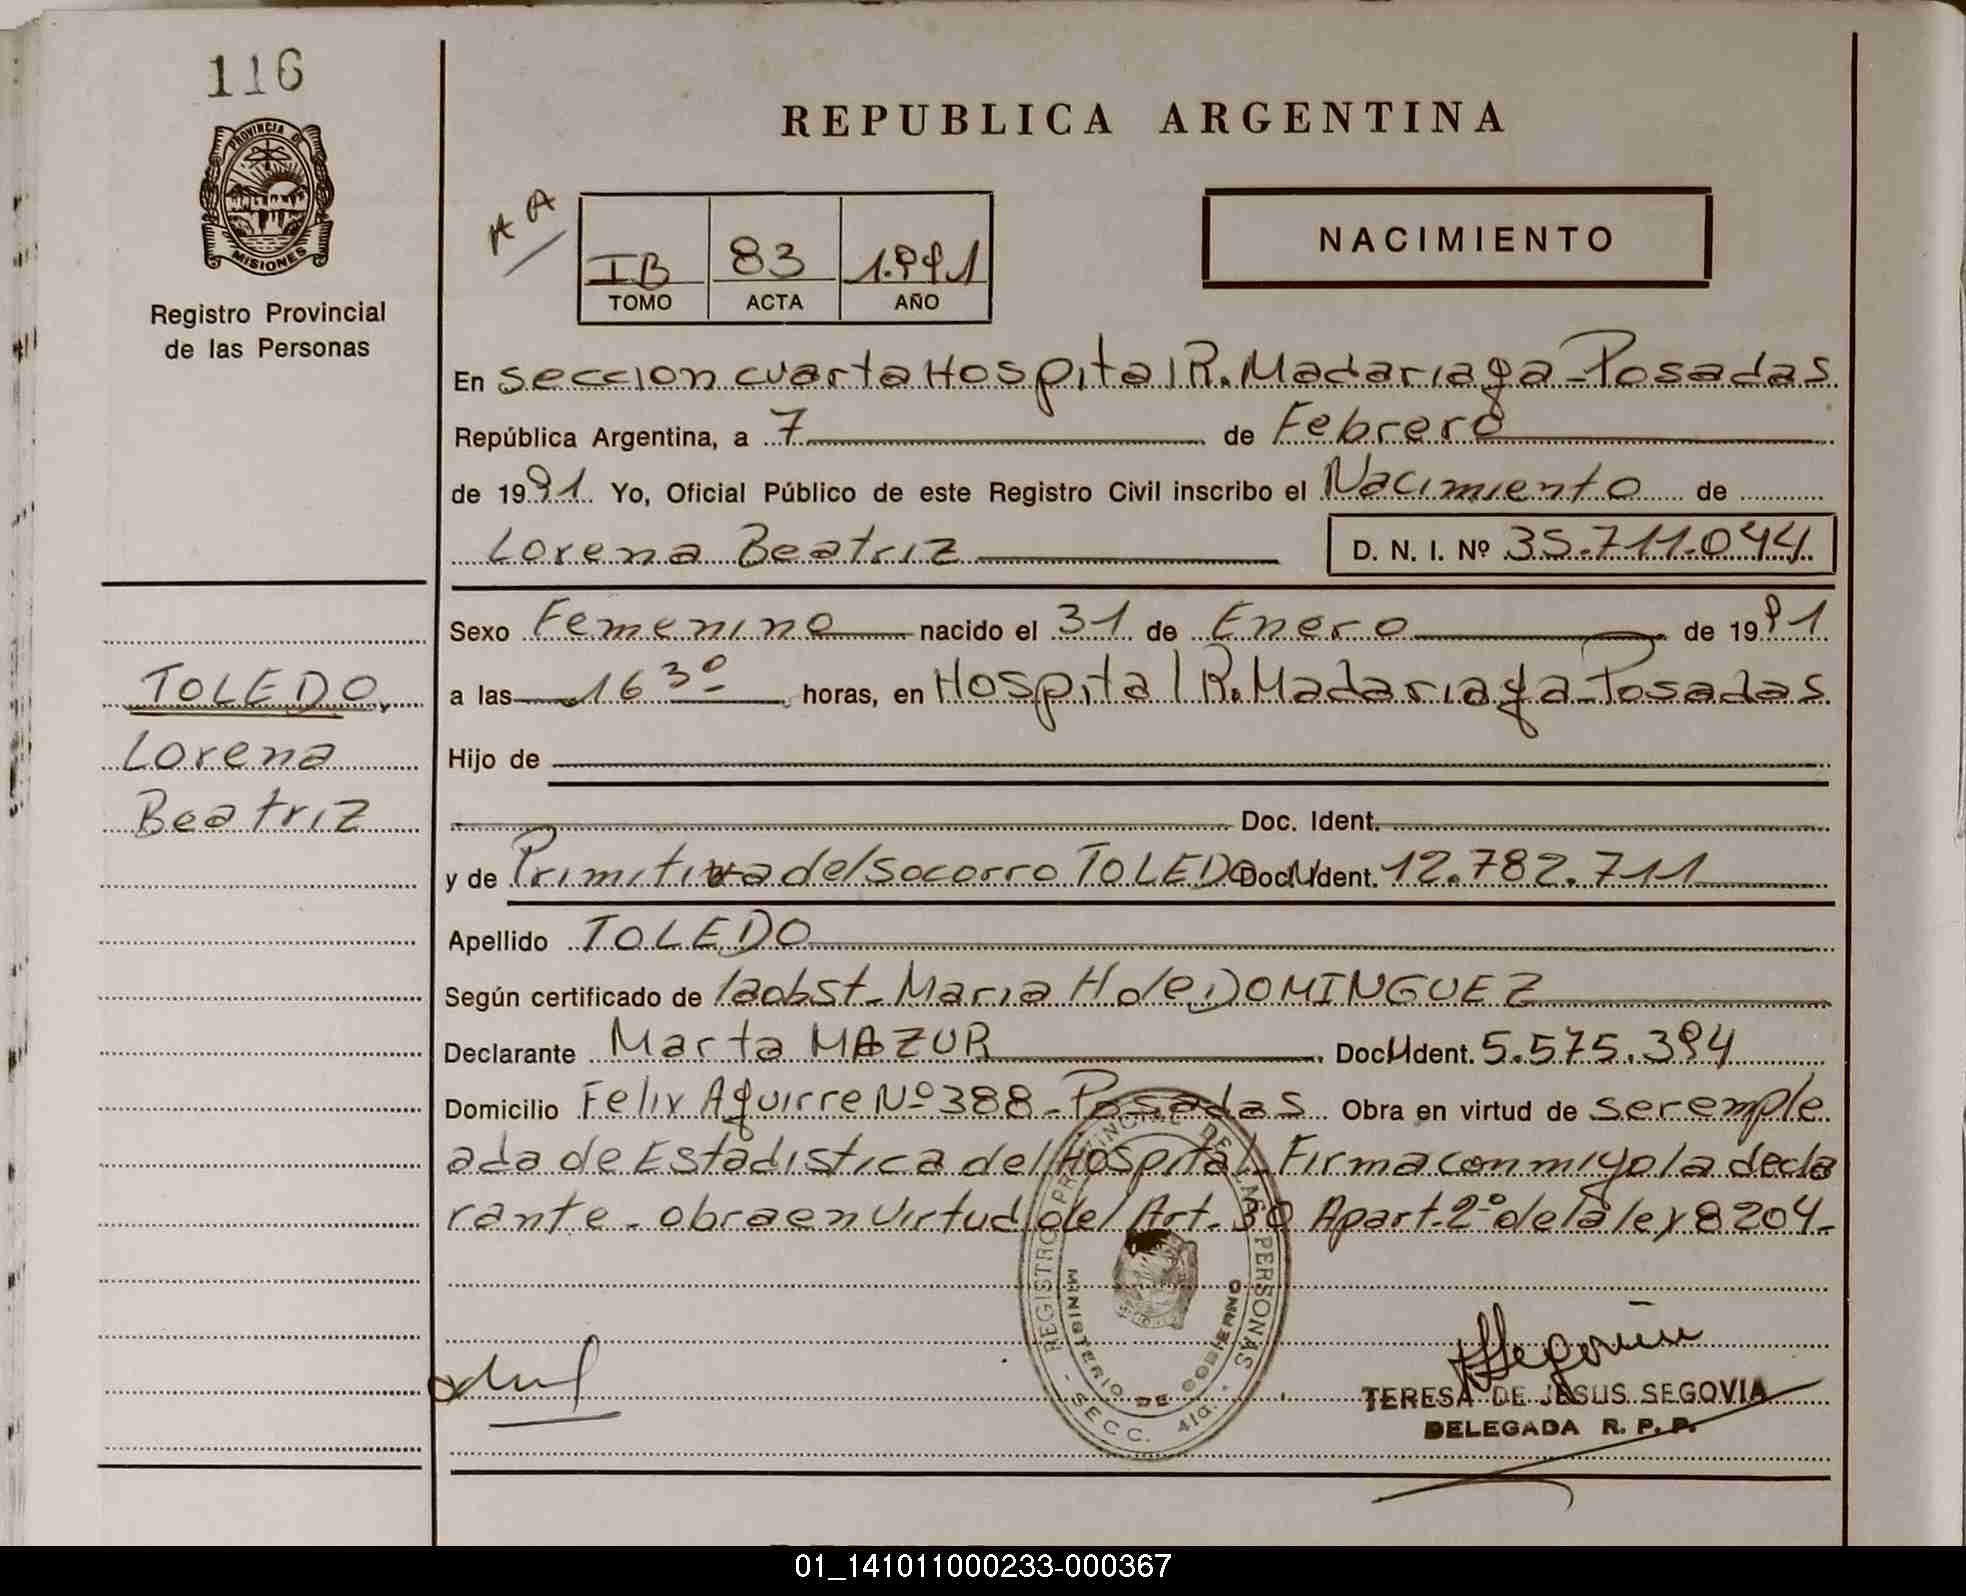 116
PROVINCIA DE
MISIONES
Registro Provincial
de las Personas
REPUBLICA ARGENTINA
AA
IB 83 1.991
TOMO ACTA AÑO
NACIMIENTO
En Seccion cuarta Hospital R. Madariaga - Posadas
República Argentina, a 7 de Febrero
de 1991 Yo, Oficial Público de este Registro Civil inscribo el Nacimiento de
Lorena Beatriz D. N. I. Nº 35.711.044
Sexo Femenino nacido el 31 de Enero de 1991
a las 16 30 horas, en Hospital R. Madariaga - Posadas
Hijo de
Doc. Ident.
y de Primitiva del Socorro TOLEDO Doc. Ident. 12.782.711
Apellido TOLEDO
Según certificado de la obst. Maria H de DOMINGUEZ
Declarante Marta MAZUR Doc. Ident. 5.575.394
Domicilio Felix Aguirre Nº 388 - Posadas Obra en virtud de ser emple
ada de Estadistica del Hospital - Firma conmigo la decla
rante - obra en virtud del Art. 30 Apart. 2º de la ley 8204.-
TOLEDO,
Lorena
Beatriz
REGISTRO PROVINCIAL DE LAS PERSONAS
MINISTERIO DE GOBIERNO
- SECC. 4ta. -
TERESA DE JESUS SEGOVIA
DELEGADA R. P. P.
01_141011000233-000367